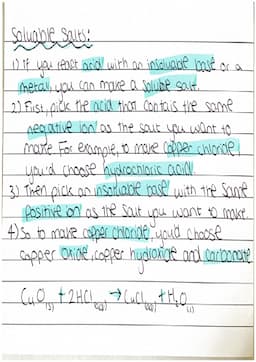 Soluable Salts:
1) If you react acid with an insoluable base or a
metal, you can make a soluble salt.
2) First, pick the acid that contais the same
negative ion as the salt you want to
make. For example, to make copper chloride,
you'd choose hydrochloric acid.
3) Then pick an insoluable base with the same
positive ion as the salt you want to make.
4) So to make copper chloride, you'd choose
copper oxide, copper hydroxide and carbonate
CuO(s) + 2HCl(aq) → CuCl₂(aq) + H₂O(l)